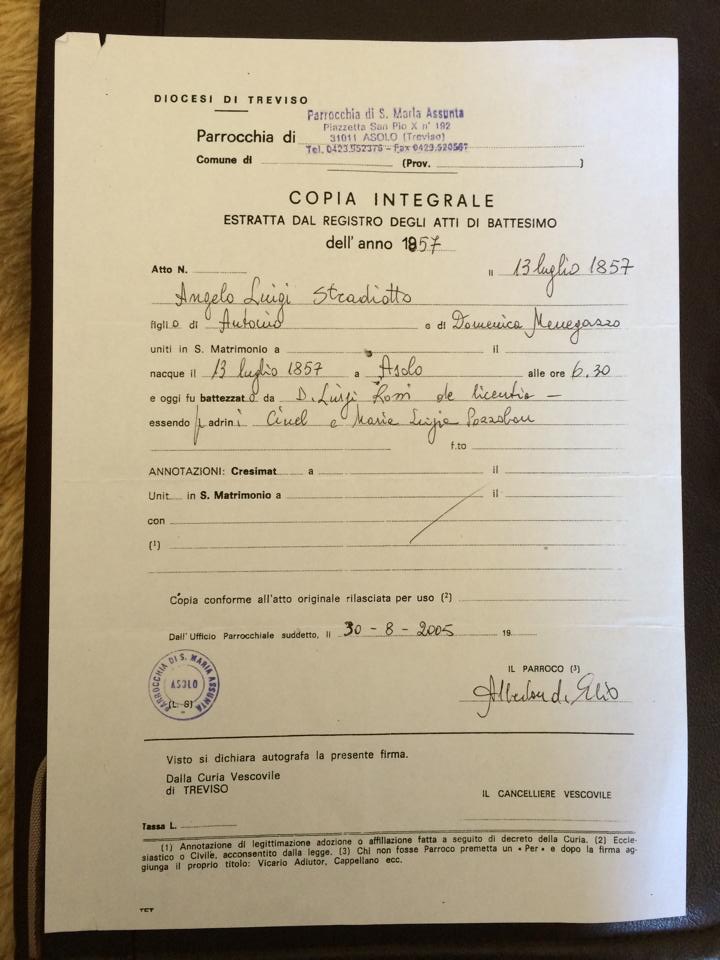 DIOCESI DI TREVISO
Parrocchia di S. Maria Assunta
Piazzetta San Pio X n° 192
Parrocchia di 31011 ASOLO (Treviso)
Tel. 0423.952376 - Fax 0423.520567
Comune di (Prov. )
COPIA INTEGRALE
ESTRATTA DAL REGISTRO DEGLI ATTI DI BATTESIMO
dell'anno 1857
Atto N. lì 13 luglio 1857
Angelo Luigi Stradiotto
figlio di Antonio e di Domenica Menegazzo
uniti in S. Matrimonio a il
nacque il 13 luglio 1857 a Asolo alle ore 6.30
e oggi fu battezzato da D. Luigi de licentia —
essendo padrini e Maria Luigia Pozzobon
f.to
ANNOTAZIONI: Cresimat a il
Unit in S. Matrimonio a il
con
(1)
Copia conforme all'atto originale rilasciata per uso (2)
Dall'Ufficio Parrocchiale suddetto, lì 30 - 8 - 2005 19
IL PARROCO (3)
PARROCCHIA DI S. MARIA ASSUNTA
ASOLO
(L. S)
Visto si dichiara autografa la presente firma.
Dalla Curia Vescovile
di TREVISO
IL CANCELLIERE VESCOVILE
Tassa L.
(1) Annotazione di legittimazione adozione o affiliazione fatta a seguito di decreto della Curia. (2) Eccle-
siastico o Civile, acconsentito dalla legge. (3) Chi non fosse Parroco premetta un «Per» e dopo la firma ag-
giunga il proprio titolo: Vicario Adiutor, Cappellano ecc.